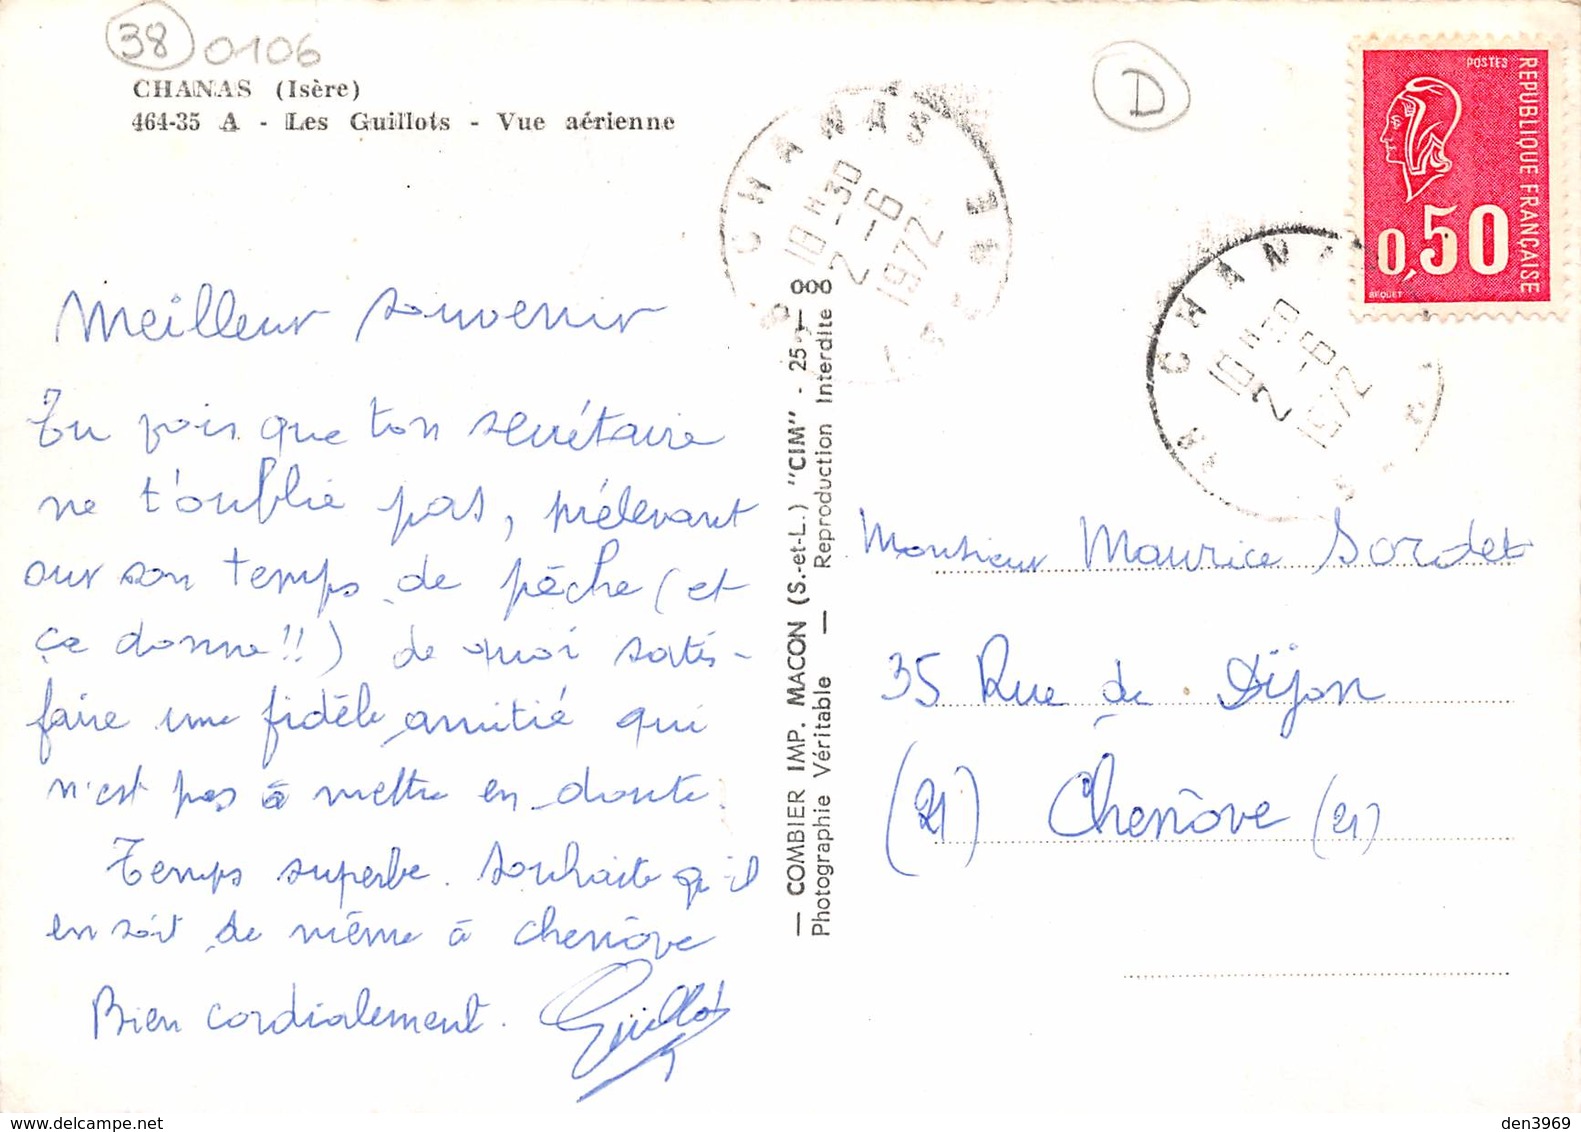 38 0106
CHANAS (Isère)
464-35 A - Les Guillots - Vue aérienne
D
POSTES
REPUBLIQUE FRANÇAISE
0,50
BEQUET
CHANAS
18 H 30
2 - 6
1972
ISERE
CHANAS
18 H 30
2 - 6
1972
Meilleur souvenir
Tu vois que ton secrétaire
ne t'oublie pas, prélevant
sur son temps de pêche (et
ça donne!!) de quoi satis-
faire une fidèle amitié qui
n'est pas à mettre en doute.
Temps superbe. Souhaite qu'il
en soit de même à Chenôve
Bien cordialement.
Guillot
— COMBIER IMP. MACON (S.-et-L.) "CIM" - 25 —
Photographie Véritable — Reproduction Interdite
Monsieur Maurice Sordet
35 Rue de Dijon
(21) Chenôve (21)
den3969